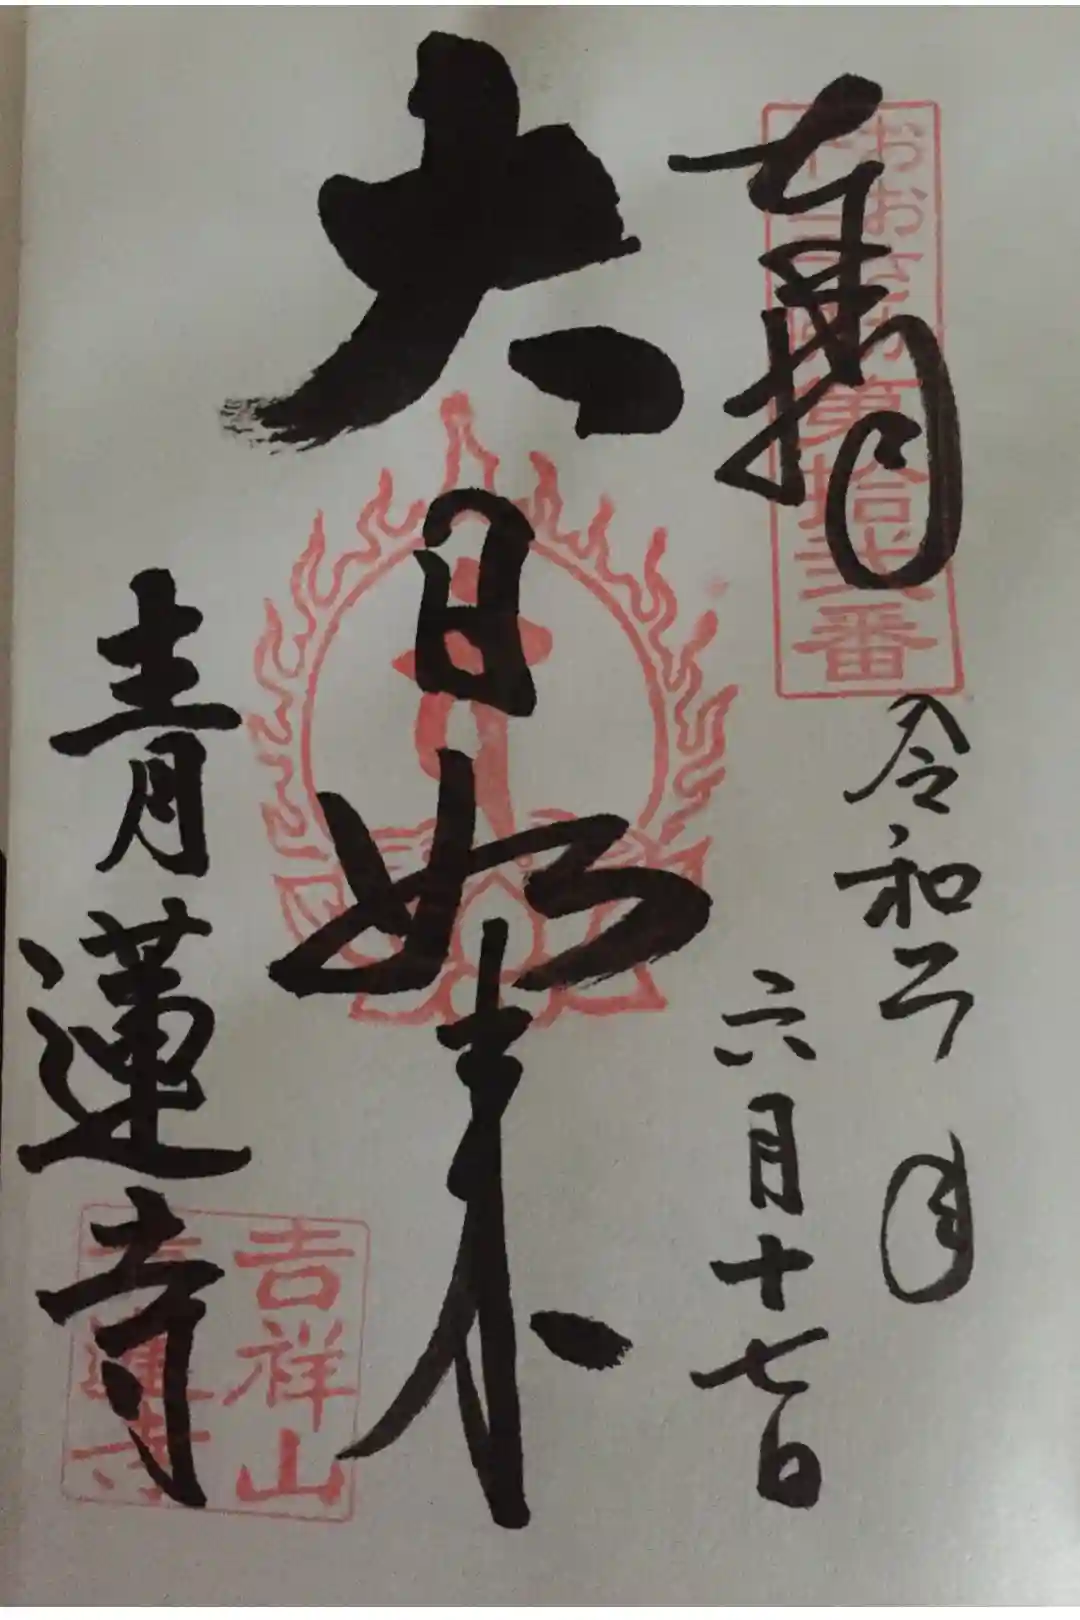 奉拝
おおさか
第拾弐番
令和二年
六月十七日
大日如来
青蓮寺
吉祥山
青蓮寺